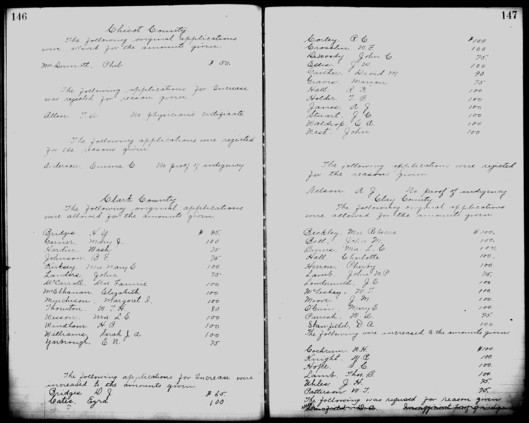 146
Chicot County
The following original applications
were allowed for the amounts given
McDermott, Phil $ 50.
The following applications for Increase
was rejected for reason given
Allen T. No physicians certificate
The following applications were rejected
for the reasons given
Anderson Emma C No proof of indigency
Clark County
The following original applications
were allowed for the amounts given
Bridges H $ 75.
Carrier Mary J. 100
Hardin Wash 75
Johnson B F 75
Kirksey Mrs Mary E 100
Landers John 75
McCarroll Mrs Fannie 100
McElhanan Elizabeth 100
Murchison Margaret S. 100
Thornton W. T. H 80
Wesson Mrs L E 100
Windham H. P 100
Williams Sarah J. A 100
Yarbrough E N 75
The following applications for Increase were
increased to the amounts given
Bridges D J $ 65.
Cates Ezra 100
147
Corley R. E. $100
Crosslin W F 100
Daswody John C 75
Ellis J W 100
David M 90
Graves Marion 75
Hall R B 100
Holder T B 100
James A J 100
Stuart J C 100
Waldrop E A 100
West John 100
The following applications were rejected
for the reasons given
Nelson A J. No proof of indigency
Clay County
The following original applications
were allowed for the amounts given
Beckley Mrs $100.
Bell John M. 100.
Mrs L. C 100.
Hall Charlotte 100.
Heron Phillip 100
Lamb John W P 75.
J. E 100
McLeskey W T 100
Moore J M 100
O'Guin Mary E 100
Parrish W. E 75.
Stanfield D. A 100
The following were increased to the amounts given
Cochrum N. H. $100
Knight W. P. 100
Hope S. C 100
Lamb Thos. B. 100
Ables J. H. 75.
Patterson W. T. 75.
The following was refused for reason given
Stanfield D. A. Insufficient proof